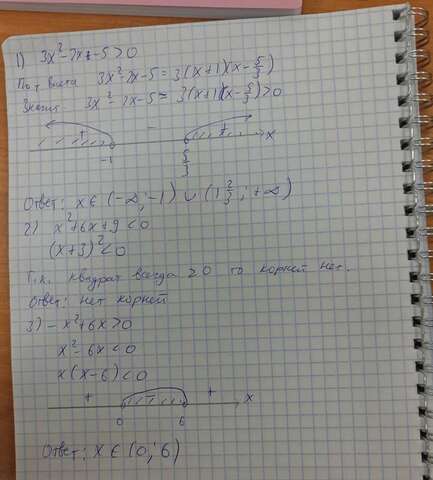 1) 3x²-2x-5>0
По т Виета 3x²-2x-5=3(x+1)(x-5/3)
Значит 3x²-2x-5=3(x+1)(x-5/3)>0
+ - + x
-1 5/3
Ответ: x∈(-∞;-1)∪(1 2/3;+∞)
2) x²+6x+9<0
(x+3)²<0
Т.к. квадрат всегда ≥0 то корней нет.
Ответ: нет корней
3) -x²+6x>0
x²-6x<0
x(x-6)<0
+ - + x
0 6
Ответ: x∈(0;6)